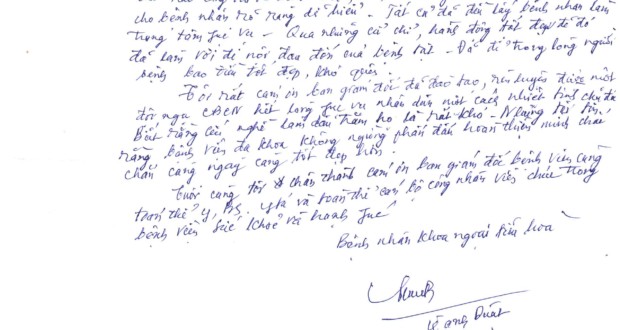 cho bệnh nhân rõ ràng dễ hiểu. Tất cả đều lấy bệnh nhân làm
trung tâm fục vụ - Qua những cử chỉ, hành động tốt đẹp đó đó
đã làm vơi đi nỗi đau đớn của bệnh tật - Để đi trong lòng người
bệnh bao tiến tốt đẹp, khó quên.
Tôi rất cám ơn ban giám đốc đã đào tạo, rèn luyện được một
đội ngũ CBCN hết lòng fục vụ nhân dân một cách nhiệt tình chu đáo
Biết rằng cái nghề làm dâu trăm họ là rất khó - Nhưng tôi tin
rằng bệnh viện đa khoa không ngừng phấn đấu hoàn thiện mình chắc
chắn càng ngày càng tốt đẹp hơn.
Cuối cùng tôi chân thành cám ơn ban giám đốc bệnh viện cùng
toàn thể y, BS, y tá và toàn thể cán bộ công nhân viên chức trong
bệnh viện sức khoẻ và hạnh fúc
Bệnh nhân khoa ngoại